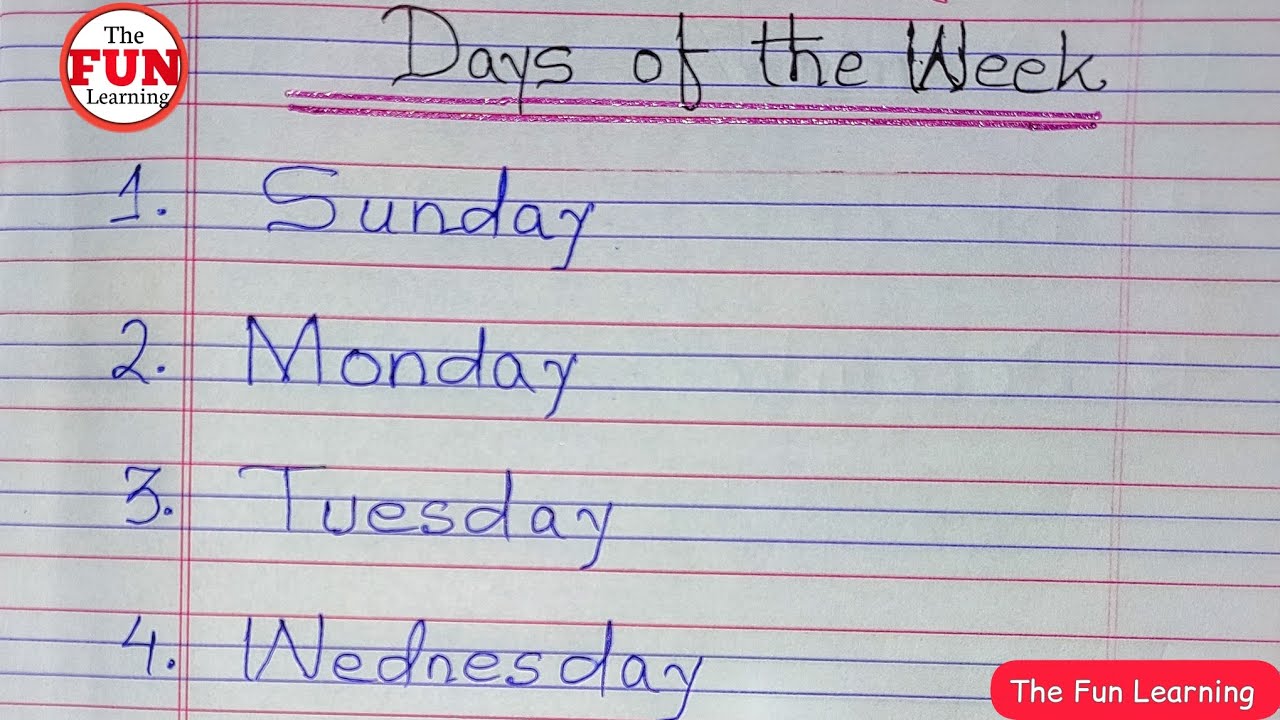 The
FUN
Learning
Days of the Week
1. Sunday
2. Monday
3. Tuesday
4. Wednesday
The Fun Learning